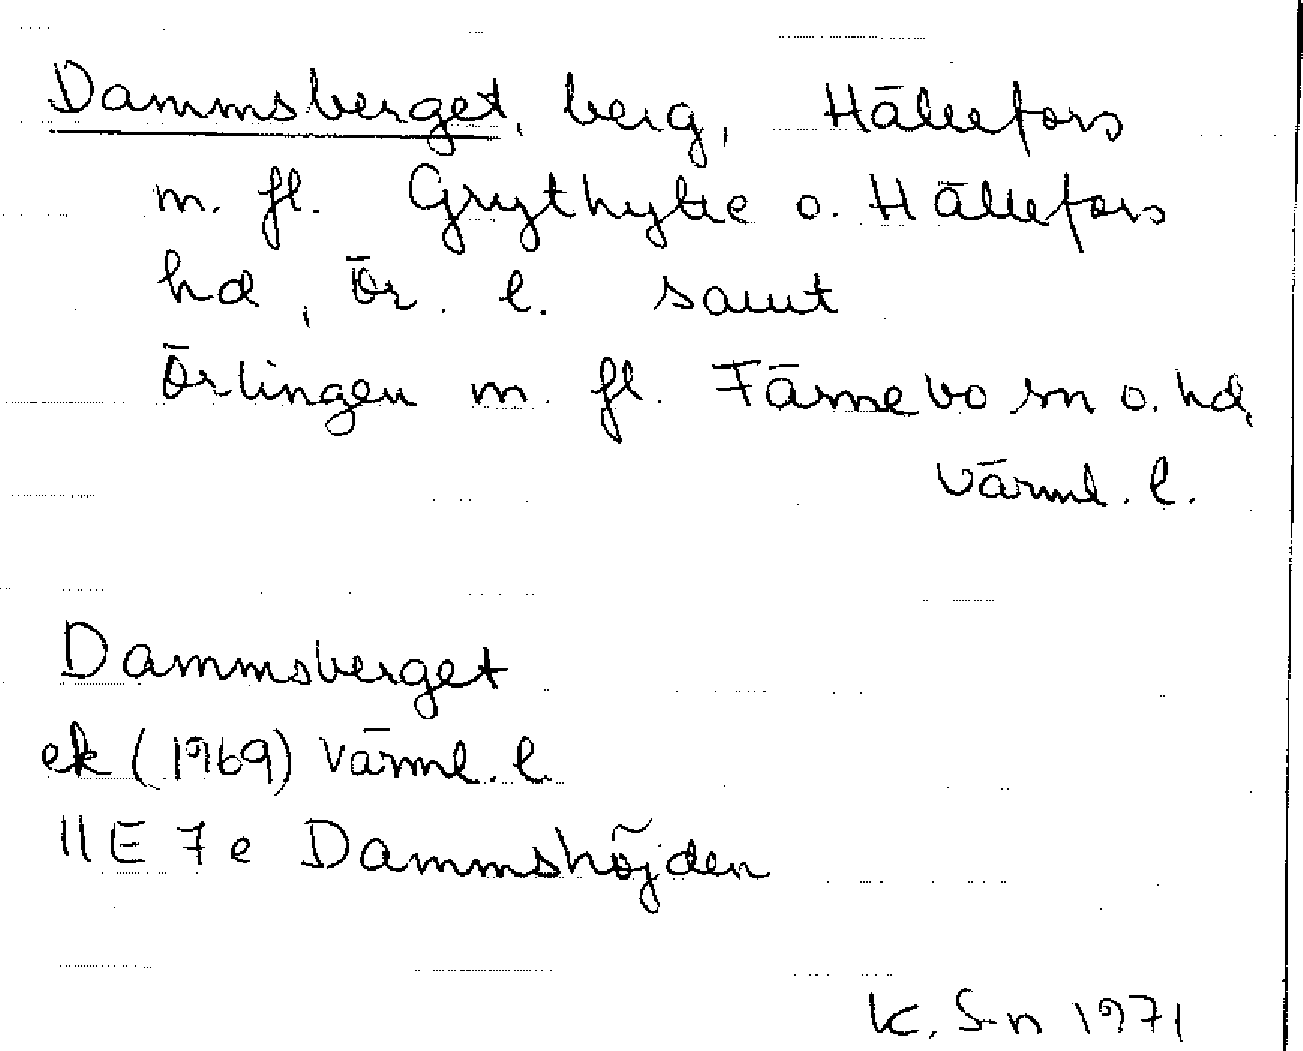 Dammsberget, berg, Hällefors
m. fl. Grythytte o. Hällefors
hd, Ör. l. samt
Örlingen m. fl. Färnebo sn o. hd,
Värml. l.
Dammsberget
ek (1969) Värml. l.
11E 7e Dammshöjden
K. S-n 1971